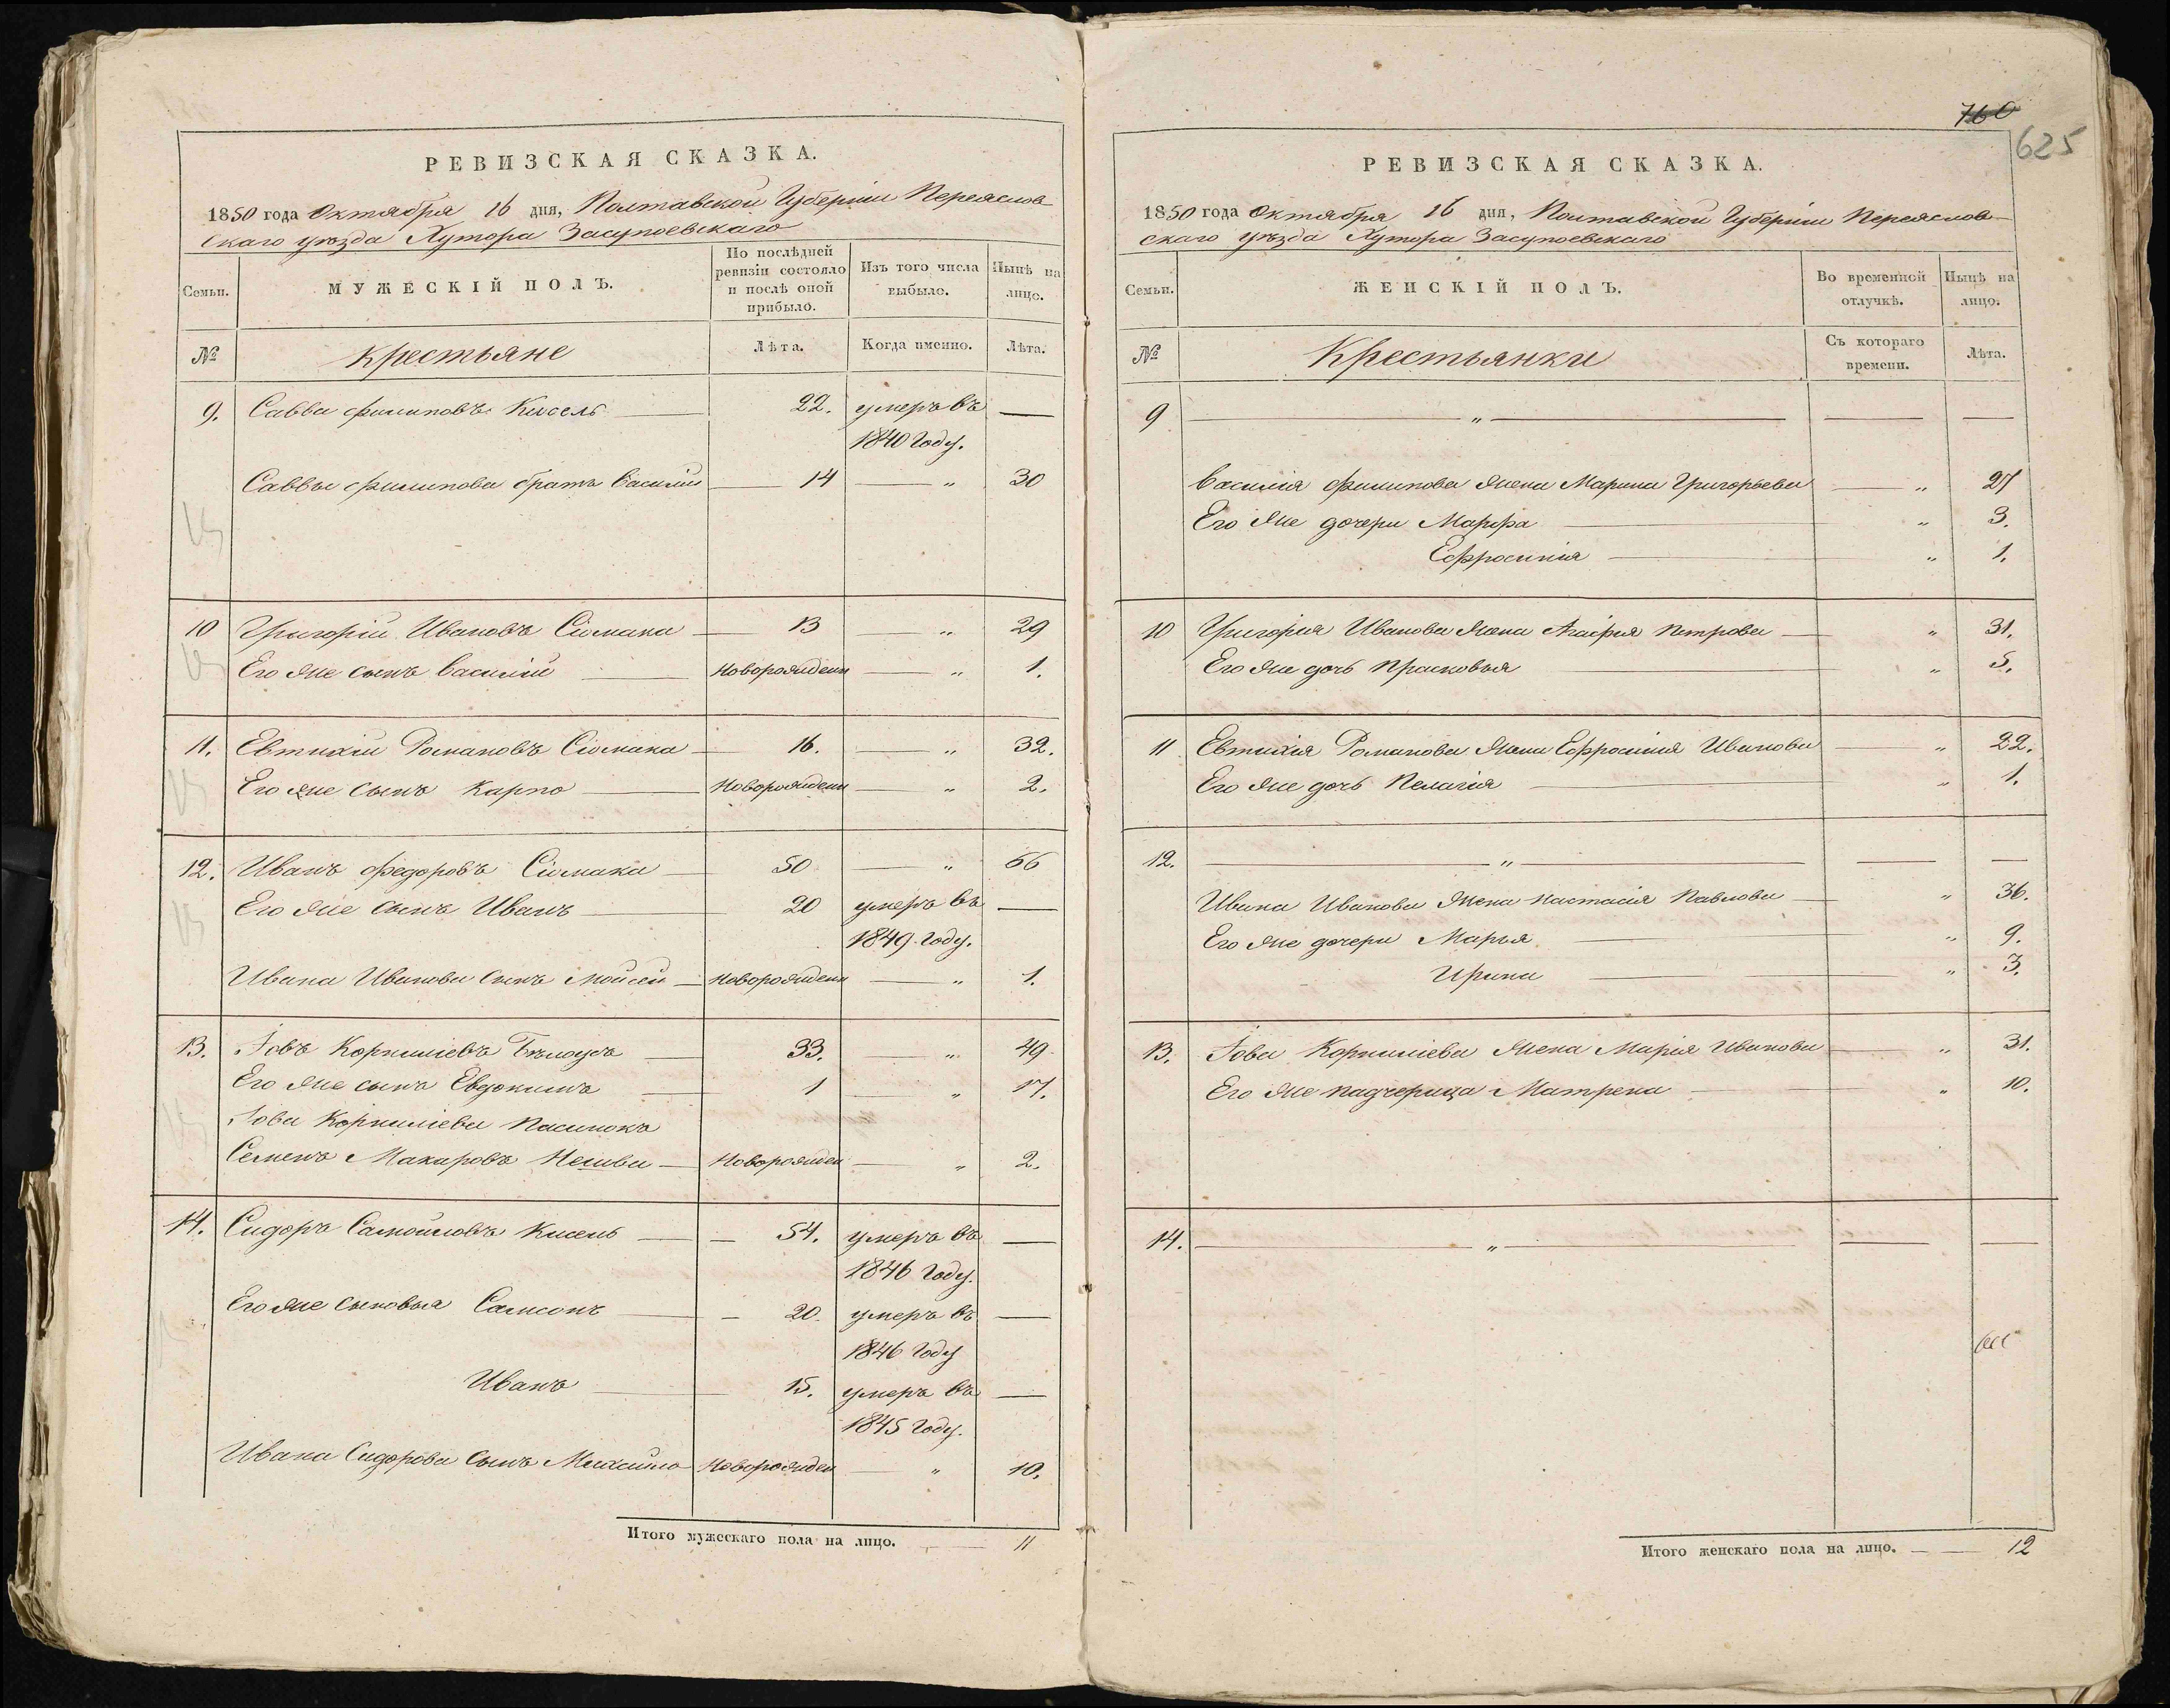 РЕВИЗСКАЯ СКАЗКА.
1850 года Октября 16 дня, Полтавской Губерніи Переяслов-
скаго уѣзда Хутора Засупоевскаго
Семьи. МУЖЕСКІЙ ПОЛЪ. По послѣдней ревизіи состояло и послѣ оной прибыло. Изъ того числа выбыло. Нынѣ на лицо.
№ Крестьяне Лѣта. Когда именно. Лѣта.
9. Савва Филиповъ Кисель 22. умеръ въ —
1840 Году.
Саввы Филипова братъ Василій 14 — " 30
10 Григорій Ивановъ Сіомака 13 " 29
Его же сынъ Василій Новорожден — " 1.
11. Евтихій Романовъ Сіомака 16. — " 32.
Его же сынъ Карпо Новорожден — " 2.
12. Иванъ Федоровъ Сіомака 50 — " 66
Его же сынъ Иванъ 20 умеръ въ —
1849 Году.
Ивана Иванова сынъ Мойсей Новорожден — " 1.
13. Іовъ Корниліевъ Бѣлоусъ 33. — " 49
Его же сынъ Евдокимъ 1 — " 17.
Іова Корниліева Пасинокъ
Семенъ Макаровъ Новорожден — " 2.
14. Сидоръ Самойловъ Кисель — 54. умеръ въ —
1846 Году.
Его же сыновья Самсонъ — 20. умеръ въ —
1846 Году
Иванъ — 15. умеръ въ —
1845 Году.
Ивана Сидорова сынъ Максимъ Новорожден — " 10.
Итого мужескаго пола на лицо. — 11
760
625
РЕВИЗСКАЯ СКАЗКА.
1850 года Октября 16 дня, Полтавской Губерніи Переяслов-
скаго уѣзда Хутора Засупоевскаго
Семьи. ЖЕНСКІЙ ПОЛЪ. Во временной отлучкѣ. Нынѣ на лицо.
№ Крестьянки Съ котораго времени. Лѣта.
9 — " — — —
Василія Филипова жена Марина Григорьева — " 27
Его же дочери Марфа — " 3.
Ефросинія — " 1.
10 Григорія Иванова жена Агафія Петрова — " 31.
Его же дочь Прасковья — " 5.
11 Евтихія Романова жена Ефросинія Иванова — " 22.
Его же дочь Пелагія — " 1.
12. — " — — —
Ивана Иванова жена Настасія Павлова — " 36.
Его же дочери Марья — " 9.
Ирина — " 3.
13. Іова Корниліева жена Марія Иванова — " 31.
Его же падчерица Матрена — " 10.
14. — " — — —
Итого женскаго пола на лицо. — 12